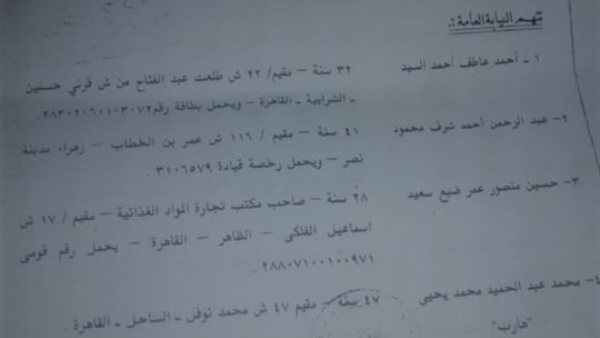 تتهم النيابة العامة :
١ ـ أحمد عاطف أحمد السيد ٣٢ سنة – مقيم/ ٢٢ ش طلعت عبد الفتاح من ش قرني حسنين
ـ الشرابية ـ القاهرة – ويحمل بطاقة رقم٢٨٣٠٢٠٦٠١٠٣٠٧٢.
٢– عبد الرحمن أحمد شرف محمود ٤١ سنة – مقيم/ ١١٦ ش عمر بن الخطاب – زهراء مدينة
نصر – ويحمل رخصة قيادة ٣١٠٦٥٧٩ .
٣– حسين منصور عمر ضبع سعيد ٢٨ سنة – صاحب مكتب تجارة المواد الغذائية – مقيم / ١٧ ش
اسماعيل الفلكى – الظاهر – القاهرة – يحمل رقم قومى
٢٨٨٠٧١٠٠١٠٠٩٧١ .
٤– محمد عبد الحميد محمد يحيى ٤٧ سنة – مقيم ٤٧ ش محمد نوفل ـ الساحل ـ القاهرة .
"هارب"